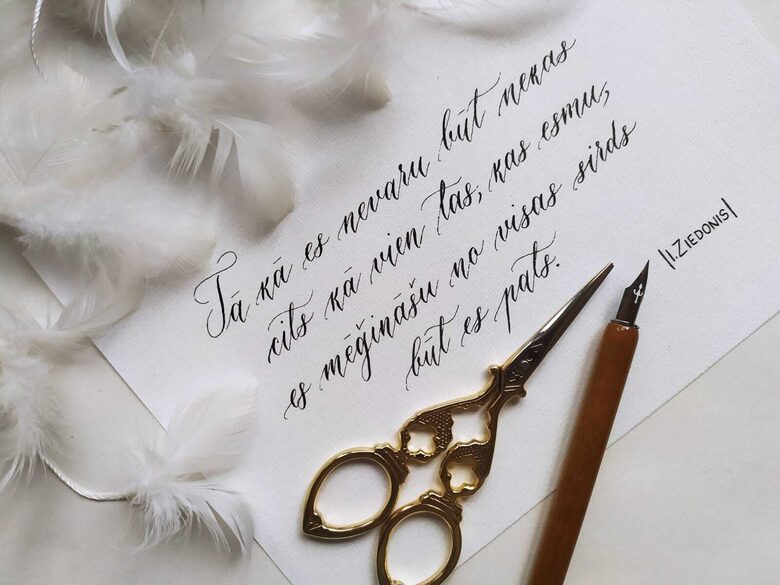 Tā kā es nevaru būt nekas
cits kā vien tas, kas esmu,
es mēģināšu no visas sirds
būt es pats.
|I. ZIEDONIS|